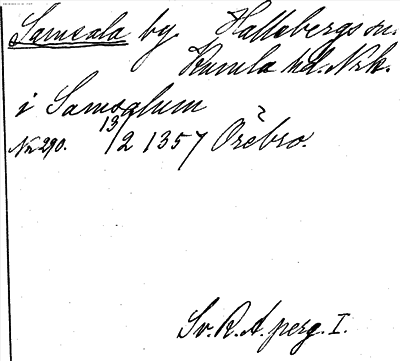 Samsala by. Hallsbergs sn.
Kumla hd. Nrk.
i Samsalum
Nr 290. 13/2 1357 Örebro.
Sv. R. A. perg. I.